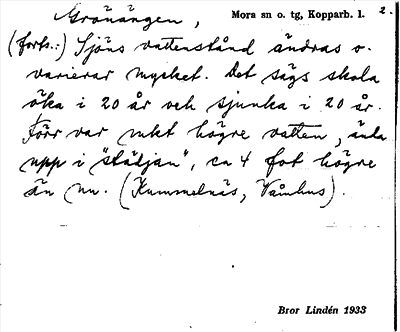 Gronängen, Mora sn o. tg, Kopparb. l. 2.
(forts.:) Sjöns vattenstånd ändras o.
varierar mycket. Det sägs skola
öka i 20 år och sjunka i 20 år.
Förr var mkt högre vatten, ända
upp i "städjan", ca 4 fot högre
än nu. (Kummelnäs, Våmhus).
Bror Lindén 1933